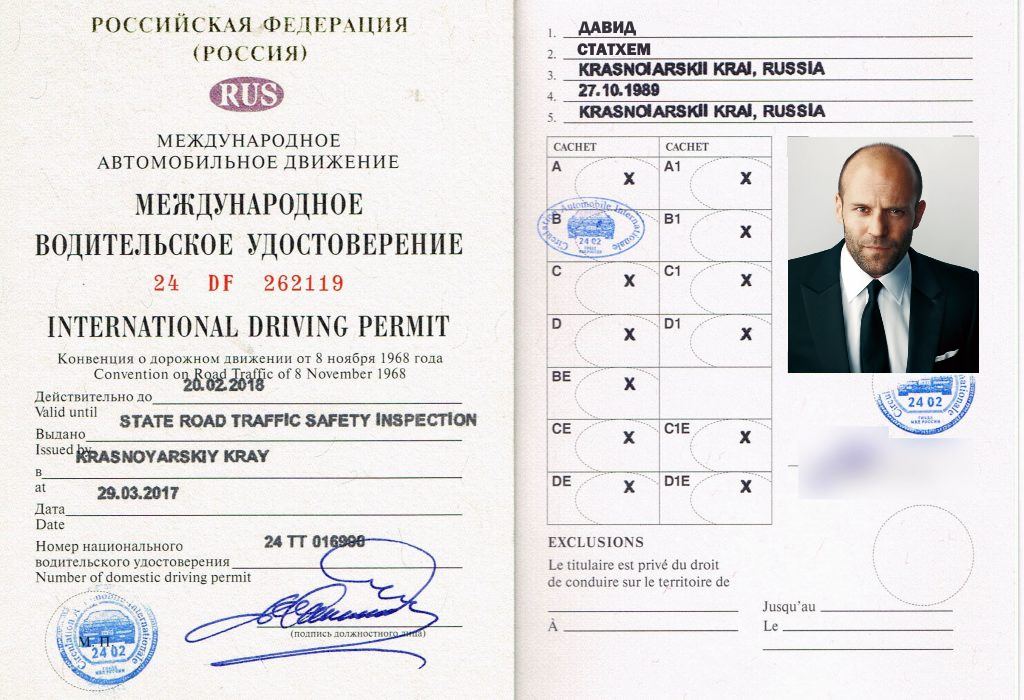 РОССИЙСКАЯ ФЕДЕРАЦИЯ
(РОССИЯ)
RUS
МЕЖДУНАРОДНОЕ
АВТОМОБИЛЬНОЕ ДВИЖЕНИЕ
МЕЖДУНАРОДНОЕ
ВОДИТЕЛЬСКОЕ УДОСТОВЕРЕНИЕ
24 DF 262119
INTERNATIONAL DRIVING PERMIT
Конвенция о дорожном движении от 8 ноября 1968 года
Convention on Road Traffic of 8 November 1968
Действительно до 20.02.2018
Valid until
Выдано STATE ROAD TRAFFIC SAFETY INSPECTION
Issued by
в KRASNOYARSKIY KRAY
at
Дата 29.03.2017
Date
Номер национального
водительского удостоверения 24 TT 016990
Number of domestic driving permit
(подпись должностного лица)
М П
Circulation Automobile Internationale
24 02
1. ДАВИД
2. СТАТХЕМ
3. KRASNOIARSKII KRAI, RUSSIA
4. 27.10.1989
5. KRASNOIARSKII KRAI, RUSSIA
CACHET CACHET
A X A1 X
B B1 X
Circulation Automobile Internationale
24 02
C X C1 X
D X D1 X
BE X
CE X C1E X
DE X D1E X
24 02
EXCLUSIONS
Le titulaire est privé du droit
de conduire sur le territoire de
Jusqu'au
À
Le